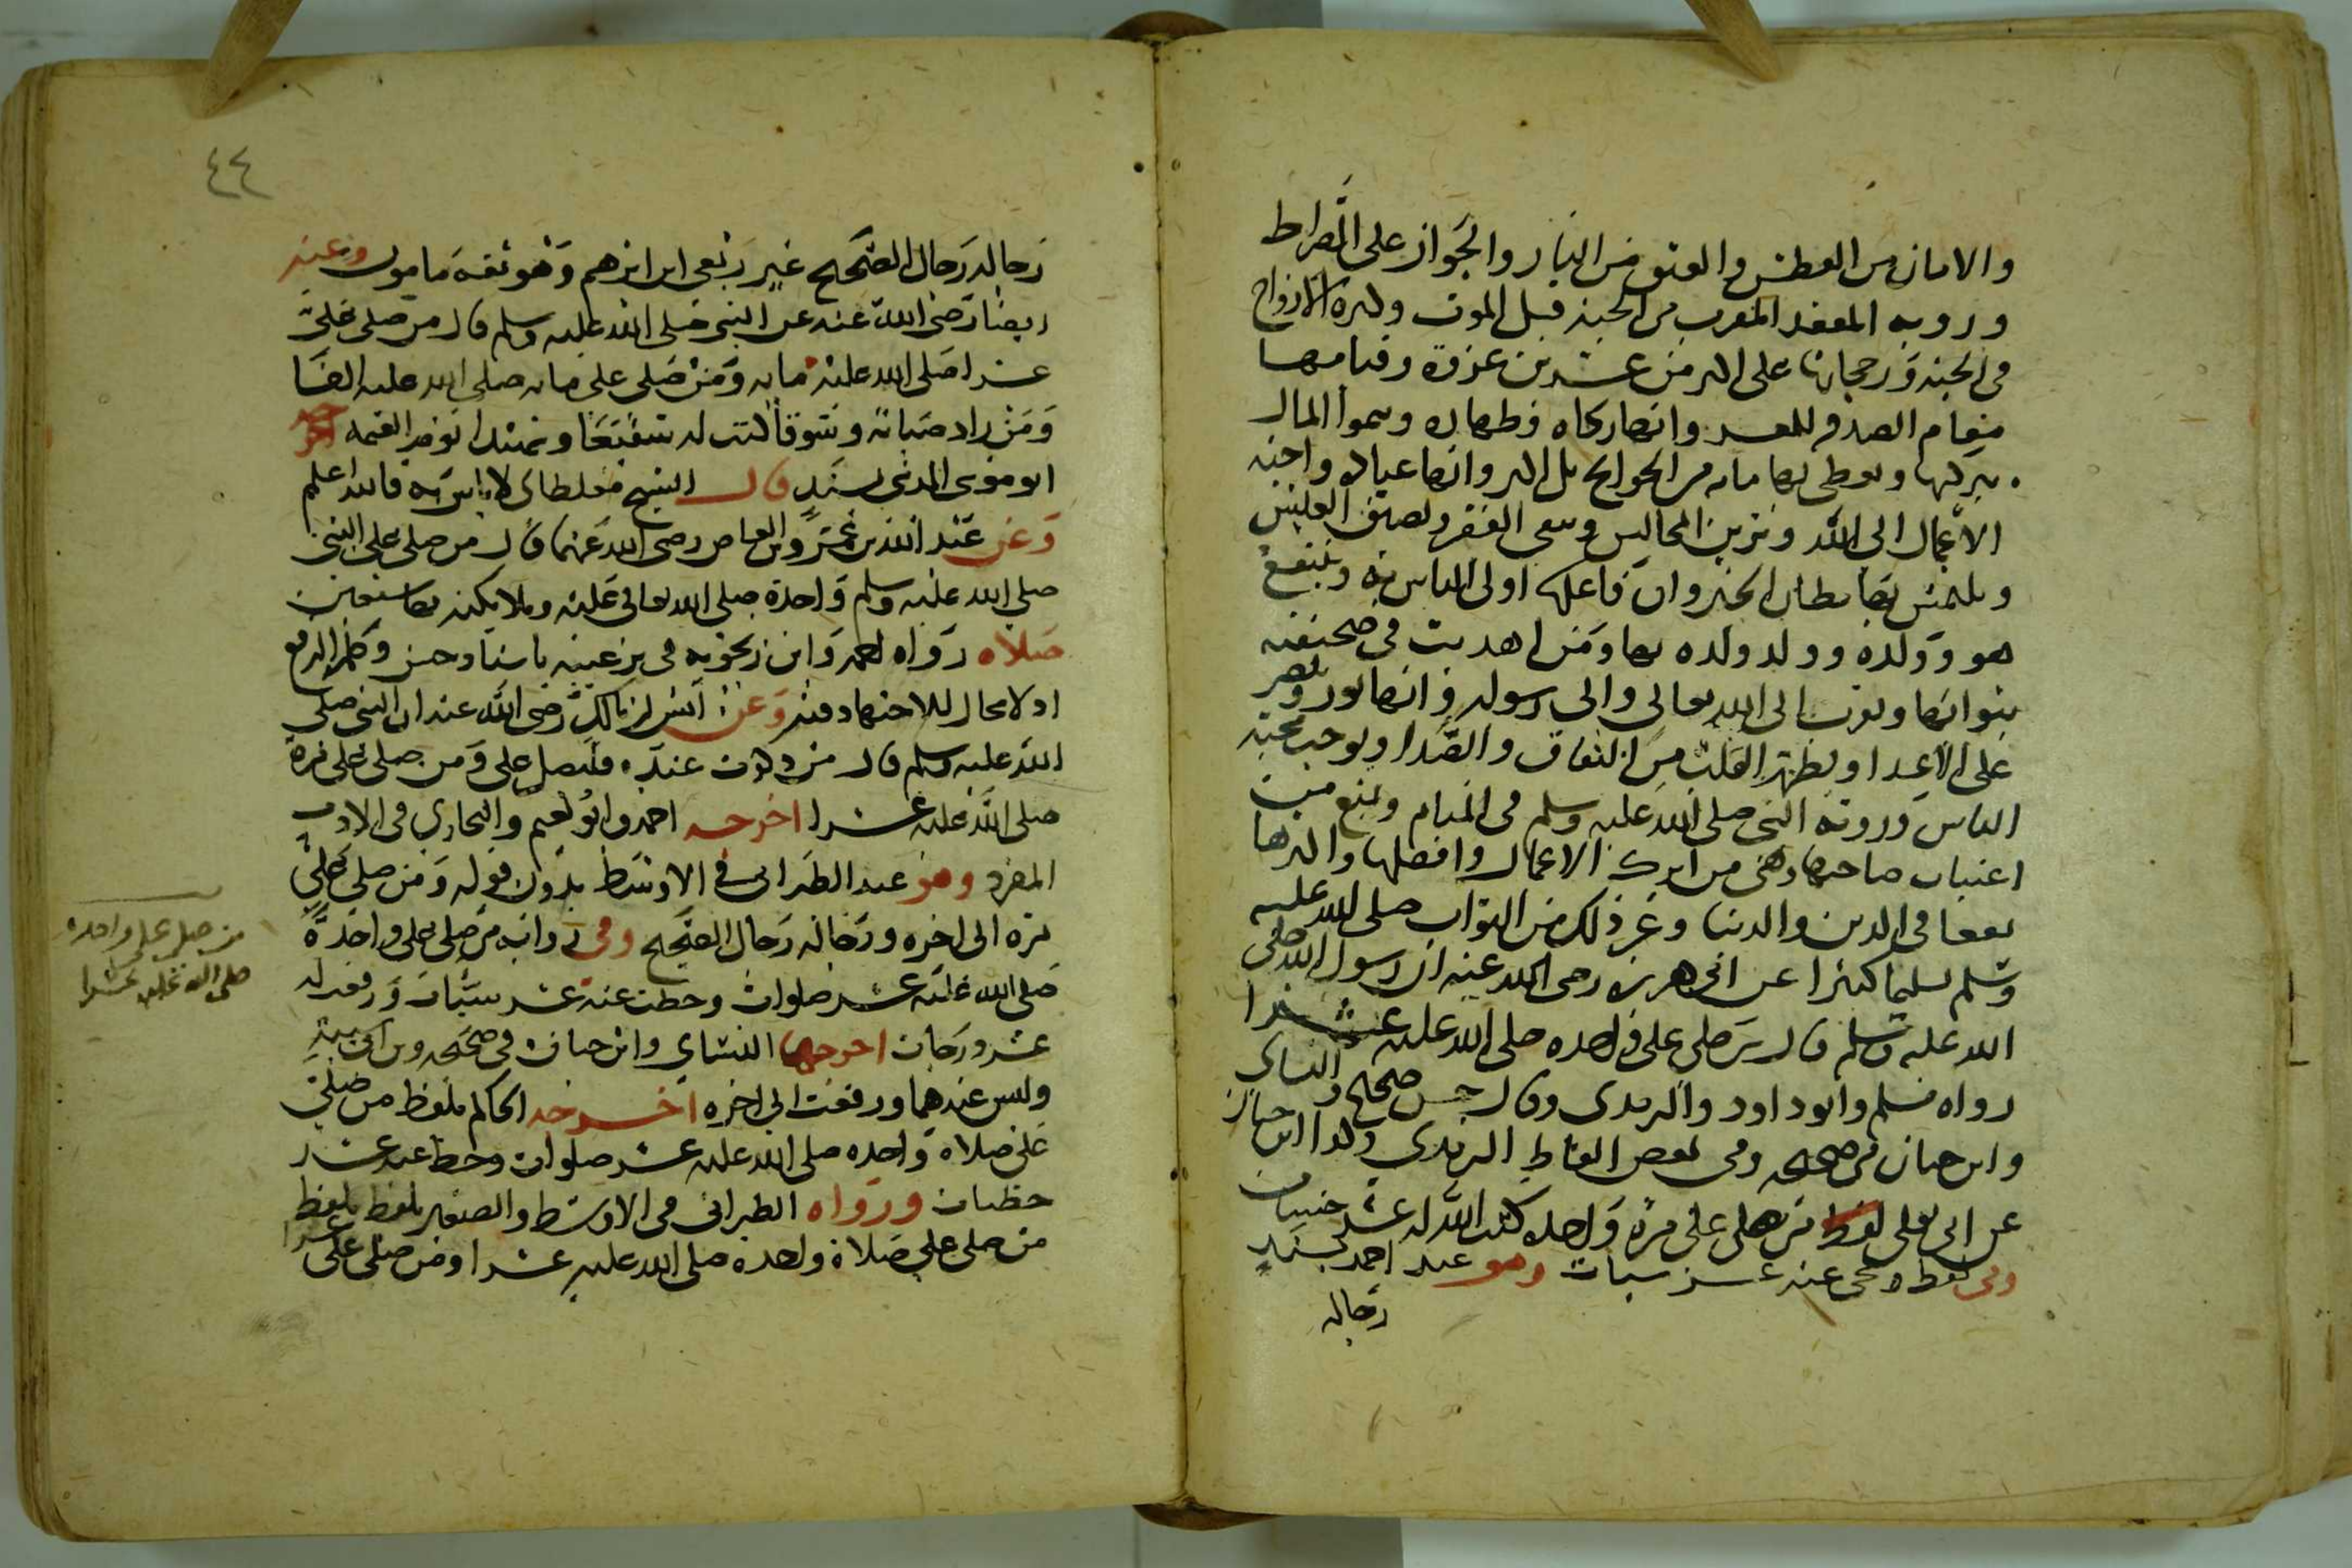 والامان من العطش والعتق من النار والجواز على الصراط
ورويه المقعد المقرب من الجنه قبل الموت وكثرة الازواج
فى الجنه ورجحانها على اكثر من عشرين غزوة وقيامها
مقام الصدقه للمعسر وانها زكاه وطهاره وينموا المال
ببركتها ويقضى بها مايه من الحوايج بل اكثر وانها عباده واحب
الاعمال الى الله وتزين المجالس وتنفى الفقر وضيق العيش
ويلتمس بها مظان الخير وان فاعلها اولى الناس به وينتفع
هو وولده وولد ولده بها ومن اهديت فى صحيفته
بثوابها وتقرب الى الله تعالى والى رسوله وانها نور ونصر
على الاعدا وتطهر القلب من النفاق والصدا وتوجب محبة
الناس وروية النبى صلى الله عليه وسلم فى المنام وتمنع من
اغتياب صاحبها وهى من ابرك الاعمال وافضلها واكثرها
نفعا فى الدين والدنيا وغير ذلك من الثواب صلى الله عليه
وسلم تسليما كثيرا عن ابى هريره رضى الله عنه ان رسول الله صلى
الله عليه وسلم قال من صلى على واحده صلى الله عليه عشرا
رواه مسلم وابو داود والترمذى وقال حسن صحيح والنساى
وابن حبان فى صحيحه وفى بعض الفاظ الترمذى وكذا ابن حبان
عن ابى يعلى لفظ من صلى على مرة واحده كتب الله له عشر حسنات
وفى لفظ ومحى عنه عشر سيات وهو عند احمد بسند
رجاله
٤٤
رجاله رجال الصحيح غير ربعى ابن ابرهم وهو ثقة مامون وعنه
ايضا رضى الله عنه عن النبى صلى الله عليه وسلم قال من صلى على
عشرا صلى الله عليه مايه ومن صلى على مايه صلى الله عليه الفا
ومن زاد صبابة وشوقا كنت له شفيعا وشهيدا يوم القيمه اخرجه
ابو موسى المدنى بسند قال الشيخ مغلطاى لا باس به فالله اعلم
وعن عبد الله بن عمرو بن العاص رضى الله عنهما قال من صلى على النبى
صلى الله عليه وسلم واحدة صلى الله تعالى عليه وملايكته بها سبعين
صلاه رواه احمد وابن زنجويه فى ترغيبه باسناد حسن وحكمه الرفع
اذ لا مجال للاجتهاد فيه وعن انس ابن مالك رضى الله عنه ان النبى صلى
الله عليه وسلم قال من ذكرت عنده فليصل على ومن صلى على مرة
صلى الله عليه عشرا اخرجه احمد وابو نعيم والبخاري فى الادب
المفرد وهو عند الطبرانى فى الاوسط بدون قوله ومن صلى على
مره الى اخره ورجاله رجال الصحيح وفى رواية من صلى على واحدة
صلى الله عليه عشر صلوات وحطت عنه عشر سيات ورفعت له
عشر درجات اخرجها النساي وابن حبان فى صحيحه وبن ابى شيبه
وليس عندهما ورفعت الى اخره اخرجه الحاكم بلفظ من صلى
على صلاة واحده صلى الله عليه عشر صلوات وحط عنه عشر
خطيات ورواه الطبرانى فى الاوسط والصغير بلفظ بلفظ
من صلى على صلاة واحدة صلى الله عليه عشرا ومن صلى على عشرا
من صلى على واحده
صلى الله عليه عشرا